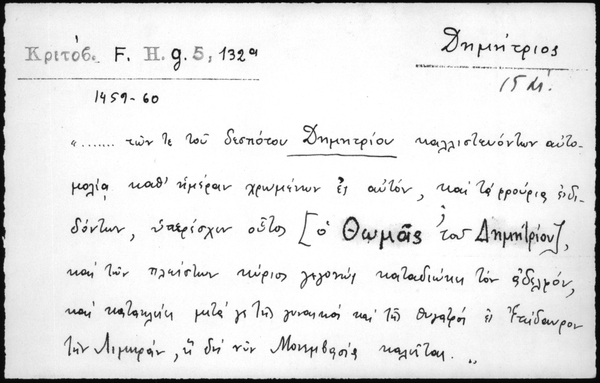 Κριτόβ. F. H. g. 5, 132α
Δημήτριος
15 Μ.
1459-60
"....... τῶν τε τοῦ δεσπότου Δημητρίου καλλιστευόντων αὐτο-
μολίᾳ καθ' ἡμέραν χρωμένων ἐς αὐτόν, καὶ τὰ φρούρια ἐνδι-
δόντων, ὑπερίσχυν οὗτος [ὁ Θωμᾶς τοῦ Δημητρίου],
καὶ τῶν πλείστων κύριος γεγονὼς καταδιώκει τὸν ἀδελφόν,
καὶ κατακλείει μετά γε τῆς γυναικὸς καὶ τῆς θυγατρὸς ἐς Ἐπίδαυρον
τὴν Λιμηράν, ἣ δὴ νῦν Μονεμβασία καλεῖται. "